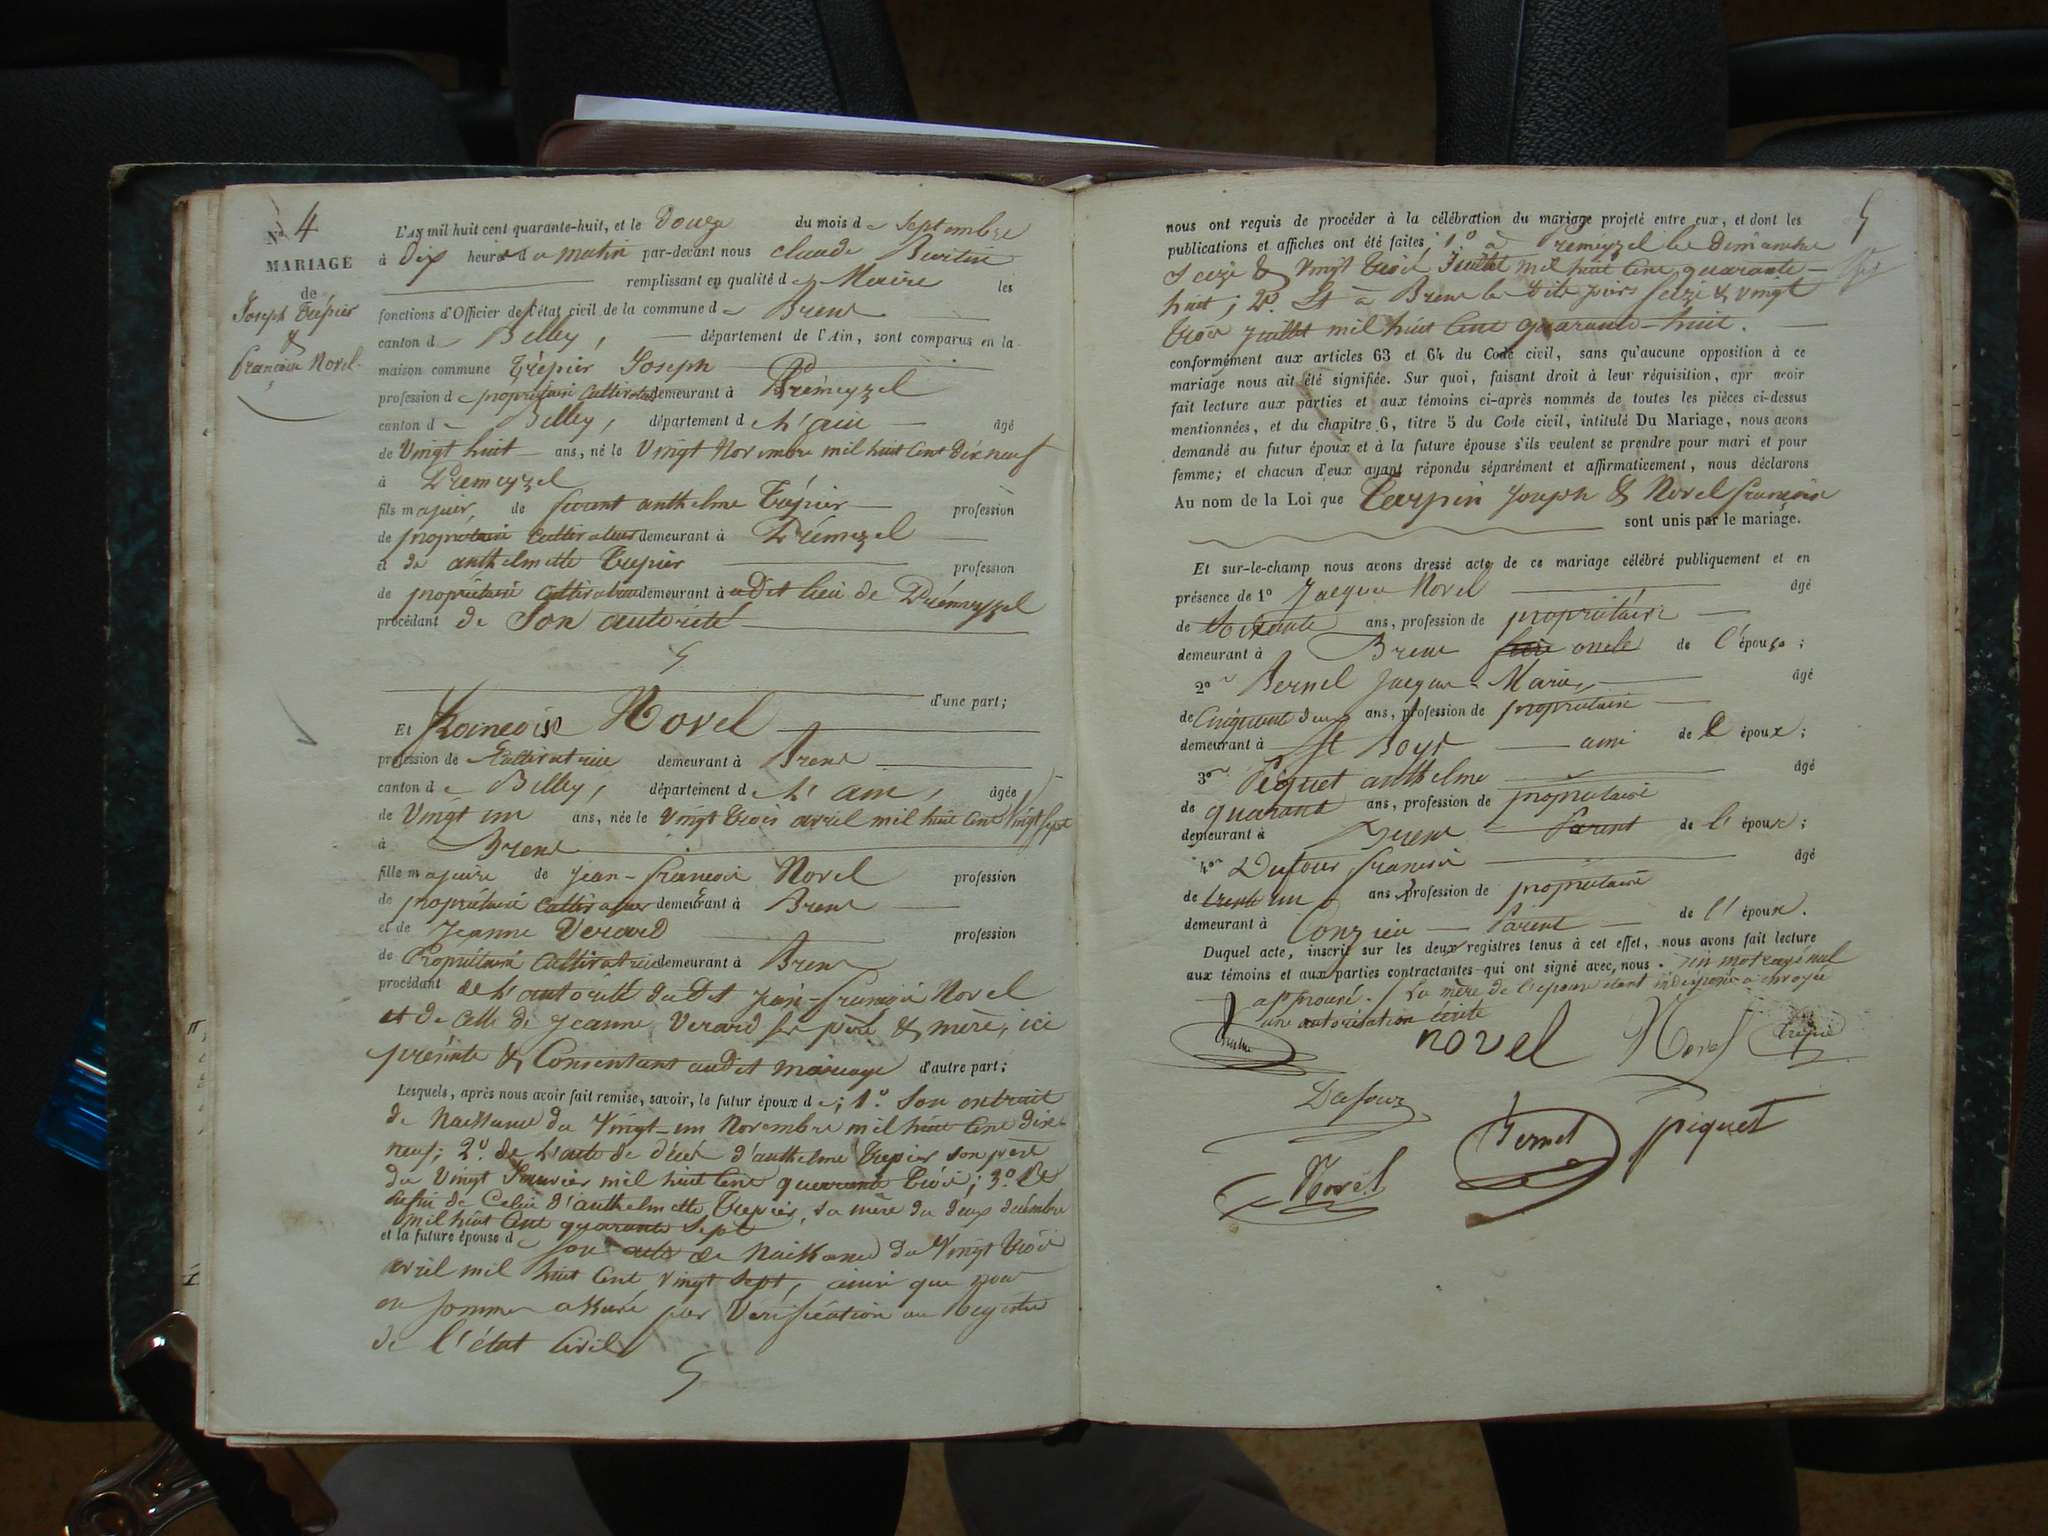 N° 4
MARIAGE
de
Joseph Trépier
&
Françoise Novel
L'AN mil huit cent quarante-huit, et le Douze du mois de Septembre
à Dix heures du matin par-devant nous Claude Burtin
remplissant en qualité de Maire les
fonctions d'Officier de l'état civil de la commune de Brens
canton de Belley, département de l'Ain, sont comparus en la
maison commune Trépier Joseph
profession de propriétaire Cultivateur demeurant à Prémeyzel
canton de Belley, département de L'ain âgé
de Vingt huit ans, né le Vingt Novembre mil huit Cent Dix neuf
à Prémeyzel
fils majeur, de anthelme Trépier profession
de propriétaire Cultivateur demeurant à Prémeyzel
et de anthelmette Trepier profession
de propriétaire Cultivateur demeurant à udit lieu de Prémeyzel
procédant de Son autorité
d'une part;
Et Francoise Novel
profession de Cultivatrice demeurant à Brens
canton de Belley, département de L'ain, âgée
de Vingt un ans, née le Vingt trois avril mil huit Cent Vingt Sept
à Brens
fille majeure de Jean-francois Novel profession
de propriétaire Cultivateur demeurant à Brens
et de Jeanne Verard profession
de Propriétaire Cultivatrice demeurant à Brens
procédant de L'autorité dudit Jean-françois Novel
et de Celle de Jeanne Verard Ses père & mère, ici
présente & Consentant audit mariage d'autre part;
Lesquels, après nous avoir fait remise, savoir, le futur époux de; 1° Son extrait
de Naissance du Vingt-un Novembre mil huit Cent dix-
neuf; 2° de L'acte de décès d'anthelme Trepier son père
du Vingt Janvier mil huit Cent quarante trois; 3° De
Celui d'anthelmette Trepier, Sa mère du deux décembre
mil huit Cent quarante Sept
et la future épouse de Son acte de Naissance du Vingt trois
avril mil huit Cent vingt Sept, ainsi que nous
en sommes assuré par Verification au Registre
de l'état Civil
5
nous ont requis de procéder à la célébration du mariage projeté entre eux, et dont les
publications et affiches ont été faites; 1° à Prémeyzel les Dimanche
Seize & Vingt trois Juillet mil huit Cent quarante-
huit; 2° Et à Brens les dits jours Seize & vingt
trois juillet mil huit Cent quarante-huit.
conformément aux articles 63 et 64 du Code civil, sans qu'aucune opposition à ce
mariage nous ait été signifiée. Sur quoi, faisant droit à leur réquisition, apr avoir
fait lecture aux parties et aux témoins ci-après nommés de toutes les pièces ci-dessus
mentionnées, et du chapitre 6, titre 5 du Code civil, intitulé Du Mariage, nous avons
demandé au futur époux et à la future épouse s'ils veulent se prendre pour mari et pour
femme; et chacun d'eux ayant répondu séparément et affirmativement, nous déclarons
Au nom de la Loi que Joseph & Novel françoise
sont unis par le mariage.
Et sur-le-champ nous avons dressé acte de ce mariage célébré publiquement et en
présence de 1° Jacques Novel âgé
de Soixante ans, profession de propriétaire
demeurant à Brens oncle de l'épouse;
2° Bernel Jacques-Marie, âgé
de Cinquante deux ans, profession de propriétaire
demeurant à St Bois ami de l'époux;
3° Piquet anthelme âgé
de quarante ans, profession de propriétaire
demeurant à Brens Parent de l'épouse;
4° Dufour francois âgé
de trente un ans, profession de propriétaire
demeurant à Conzieu Parent de l'époux.
Duquel acte, inscrit sur les deux registres tenus à cet effet, nous avons fait lecture
aux témoins et aux parties contractantes qui ont signé avec nous. un mot rayé nul
approuvé. La mère de l'épouse étant indisposée a envoyée
une autorisation écrite
novel Novel Trépié
Dufour
Bernel piquet
Novel